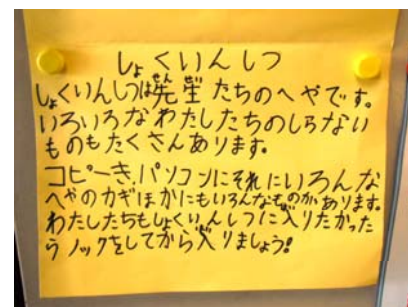 しょくいんしつ
しょくいんしつは先生たちのへやです。
いろいろなわたしたちのしらない
ものもたくさんあります。
コピーき、パソコンにそれにいろんな
へやのカギほかにもいろんなものがあります。
わたしたちもしょくいんしつに入りたかった
らノックをしてから入りましょう!